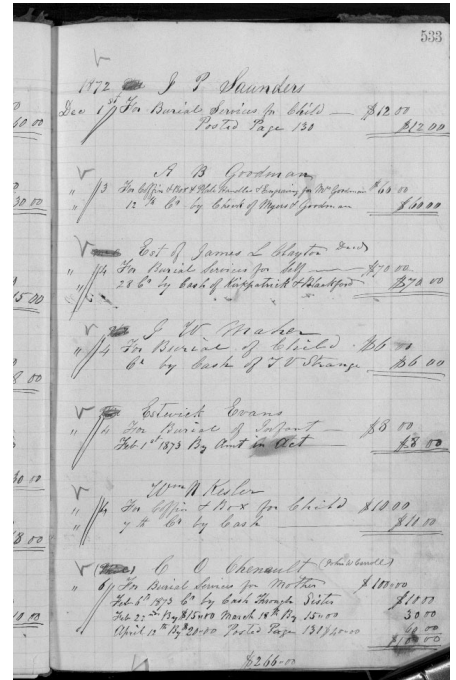 533
1872 J P Saunders
Dec 1st For Burial Services for Child $12 00
Posted Page 130 $12 00
A B Goodman
" 3 For Coffin & Box & Plate Handles & Engraving for Mrs Goodman $60 00
12th Cr by Check of Myers & Goodman $60 00
Est of James L Clayton Decd
" 4 For Burial Services for Self $70 00
28 Cr by Cash of Kirkpatrick & Blackford $70 00
J W Maher
" 4 For Burial of Child $6
Cr by Cash of T V Strange $6 00
Estwick Evans
" 4 For Burial of Infant $8 00
Feb 1st 1873 By Amt in Act $8 00
Wm N Kesler
" 4 For Coffin & Box for Child $10.00
7th Cr by Cash $10 00
C O Chenault
6 For Burial Services for Mother $100.00
Feb 6th 1873 Cr by Cash Through Sister $10 00
Feb 22nd By $15.00 March 18th By 15.00 30 00
April 12th By $20.00 Posted Page 131 $40.00 60 00
$100 00
$266.00
60.00
30 00
15 00
8 00
30 00
18 00
10.00